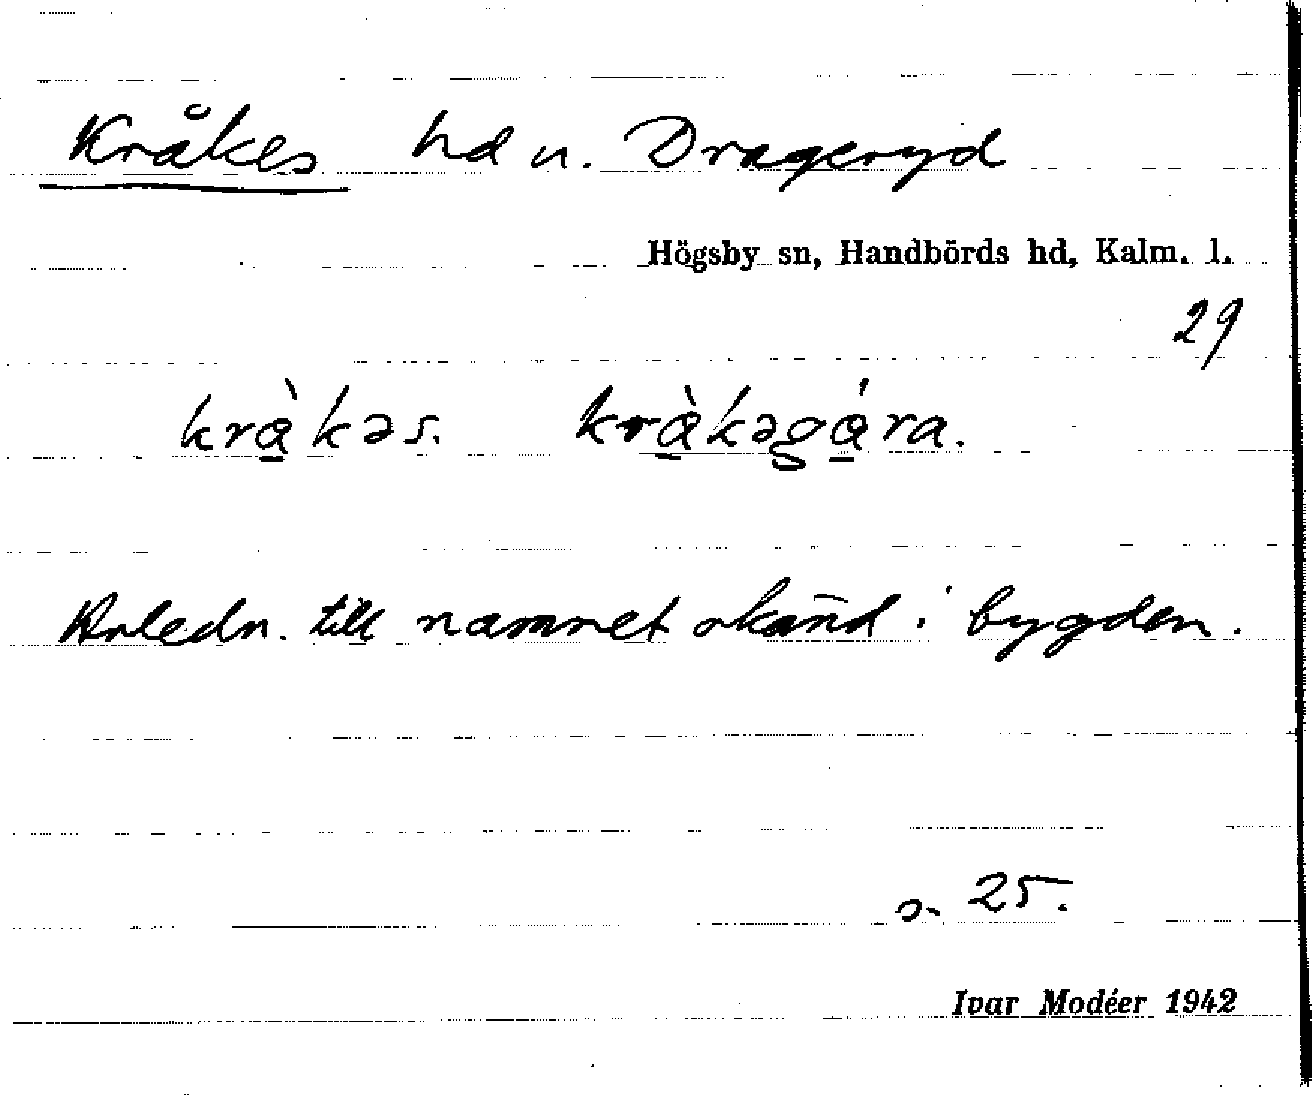 Kråkes hd u. Drageryd
Högsby sn, Handbörds hd, Kalm. l.
29
krà̱kəs. krà̱kəgá̱ra.
Anledn. till namnet okänd i bygden.
s. 25.
Ivar Modéer 1942